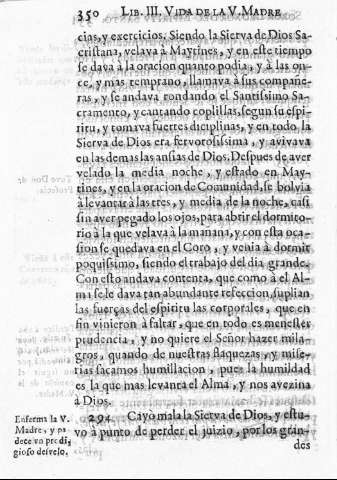 350 LIB. III. VIDA DE LA V. MADRE
cias, y exercicios. Siendo la Sierva de Dios Sa-
cristana, velava à Maytines, y en este tiempo
se dava à la oracion quanto podia, y à las on-
ce, y mas temprano, llamava à sus compañe-
ras, y se andava rondando el Santissimo Sa-
cramento, y cantando coplillas, segun su espi-
ritu, y tomava fuertes diciplinas, y en todo la
Sierva de Dios era fervorosissima, y avivava
en las demas las ansias de Dios. Despues de aver
velado la media noche, y estado en May-
tines, y en la oracion de Comunidad, se bolvia
à levantar à las tres, y media de la noche, casi
sin aver pegado los ojos, para abrir el dormito-
rio à la que velava à la mañana, y con esta oca-
sion se quedava en el Coro, y venia à dormir
poquissimo, siendo el trabajo del dia grande.
Con esto andava contenta, que como à el Al-
ma se le dava tan abundante refeccion, suplian
las fuerças del espiritu las corporales, que en
fin vinieron à faltar, que en todo es menester
prudencia, y no quiere el Señor hazer mila-
gros, quando de nuestras flaquezas, y mise-
rias sacamos humillacion, pues la humildad
es la que mas levanta el Alma, y nos avezina
à Dios.
294. Cayò mala la Sierva de Dios, y estu-
vo à punto de perder el juizio, por los gran-
des
Enferma la V.
Madre, y pa
dece un prodi,
gioso desvelo.